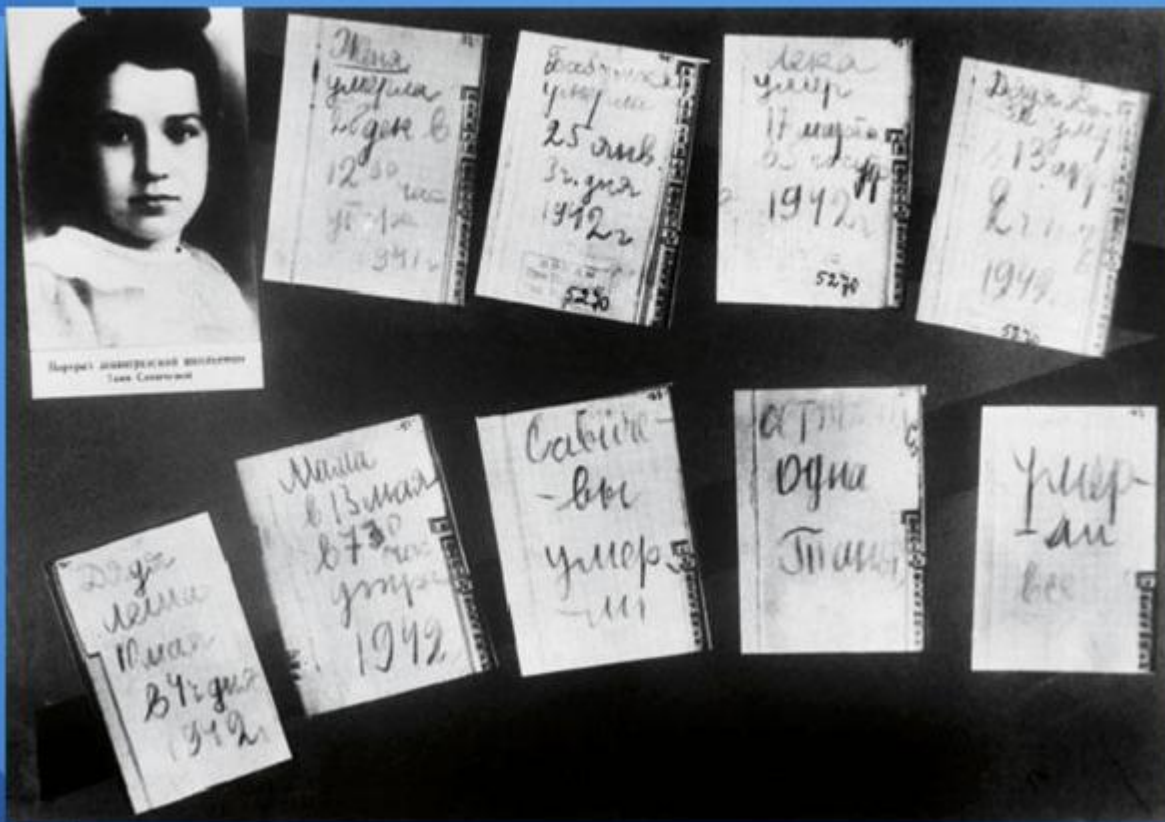 Портрет ленинградской школьницы
Тани Савичевой
Женя
умерла
28 дек в
12 30 час
утра
Бабушка
умерла
25 янв.
3 ч. дня
1942 г
5270
Лека
умер
17 марта
в 5 час утр
1942 г
5270
Дядя
умер
13 апр
2 ч
1942
5270
Дядя
Леша
10 мая
в 4 ч дня
1942 г
Мама
в 13 мая
в 7 30 час
утра
1942
Савиче-
-вы
умер
-ли
одна
Таня
умер-
-ли
все